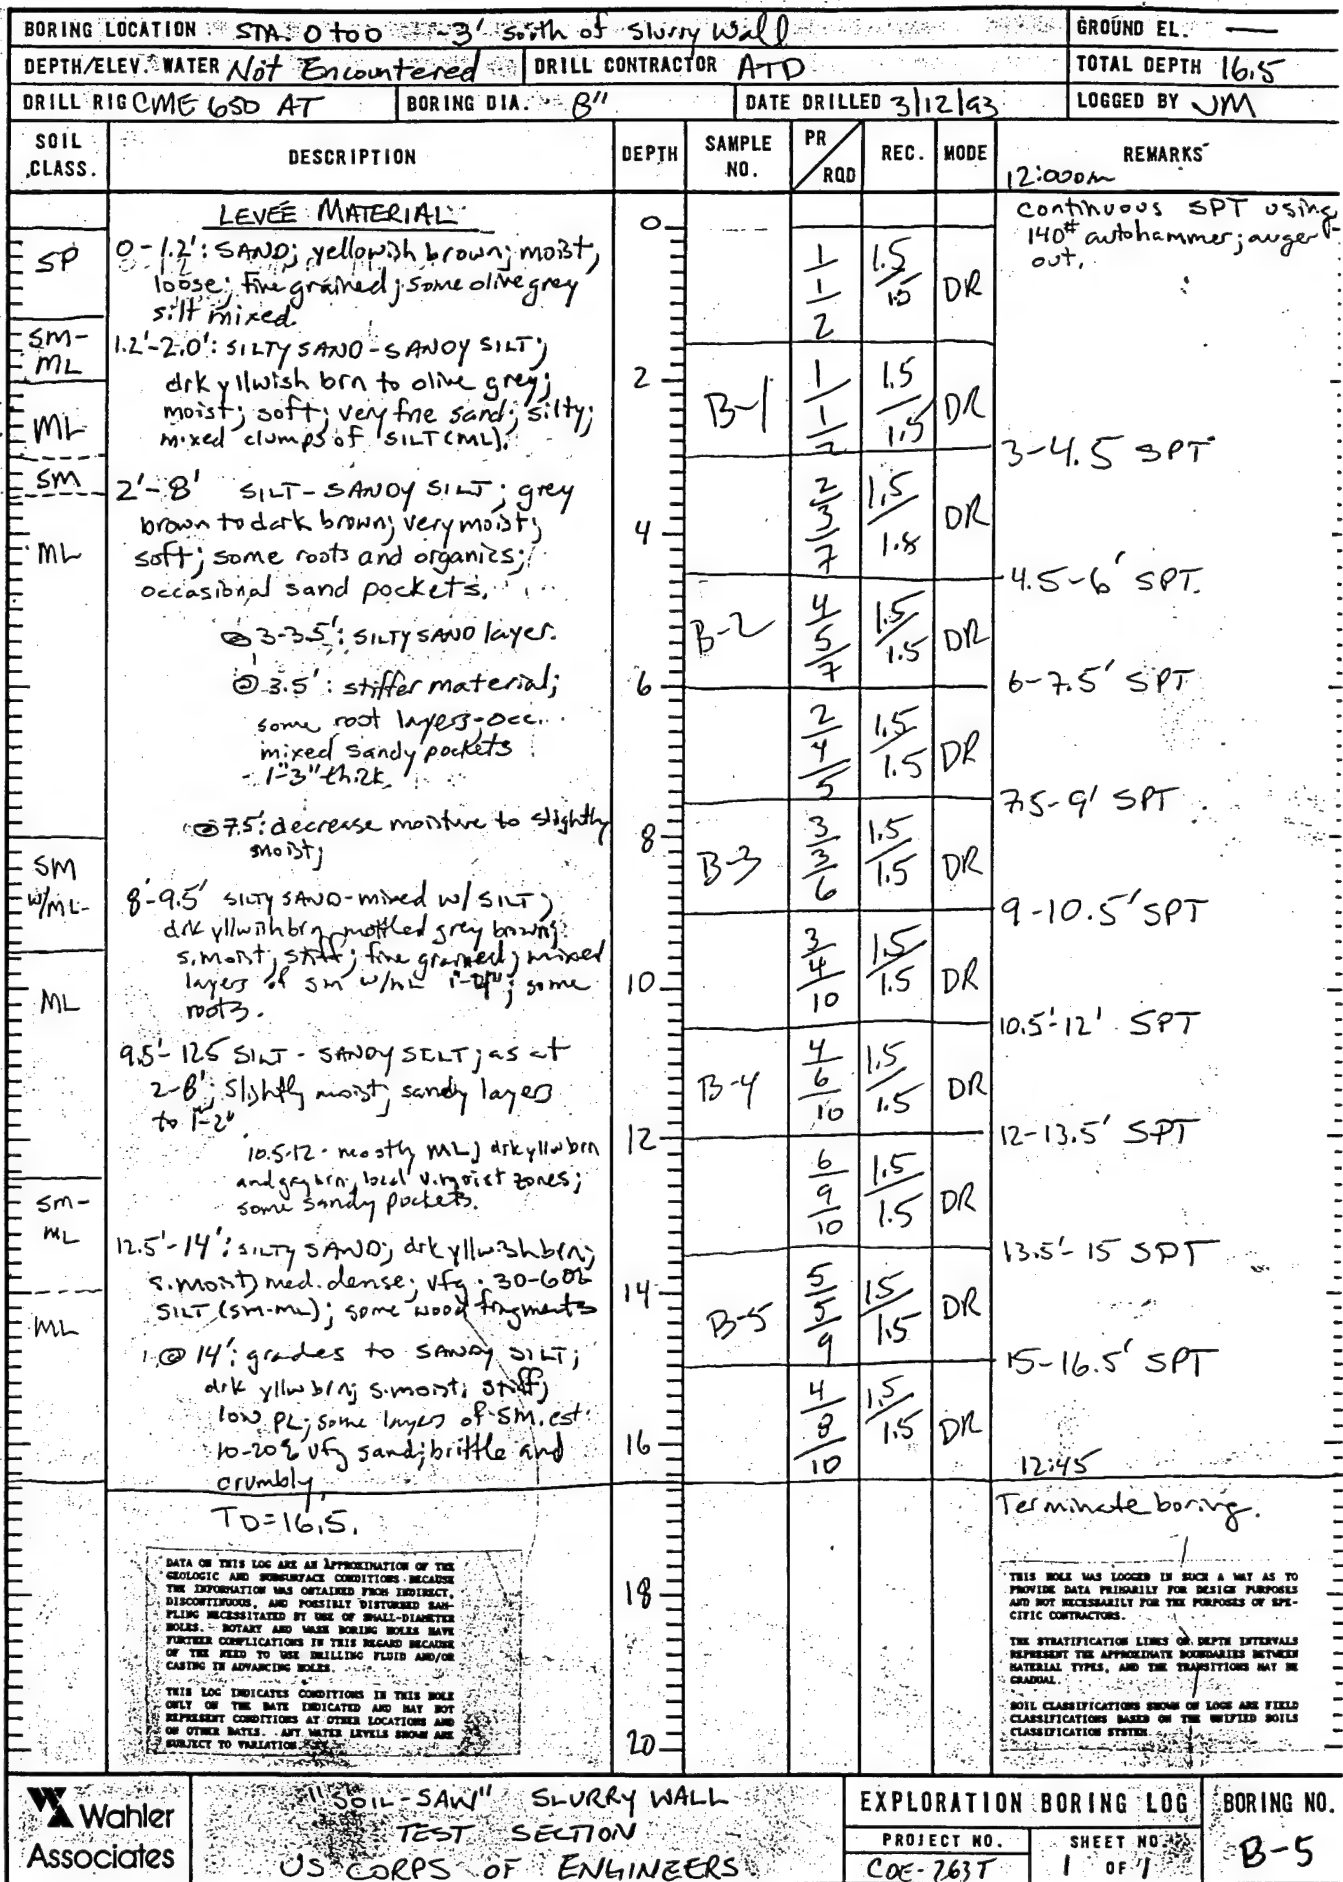 BORING LOCATION STA. 0+00 ~3' south of Slurry Wall
GROUND EL. —
DEPTH/ELEV. WATER Not Encountered
DRILL CONTRACTOR ATD
TOTAL DEPTH 16.5
DRILL RIG CME 650 AT
BORING DIA. 8"
DATE DRILLED 3/12/93
LOGGED BY JM
SOIL CLASS.
DESCRIPTION
DEPTH
SAMPLE NO.
PR/RQD
REC.
MODE
REMARKS
12:00pm
LEVEE MATERIAL
SP
0-1.2': SAND; yellowish brown; moist,
loose; fine grained; some olive grey
silt mixed.
SM-
ML
1.2'-2.0': SILTY SAND-SANDY SILT;
drk yllwish brn to olive grey;
moist; soft; very fine sand; silty;
mixed clumps of SILT (ML).
ML
SM
ML
2'-8' SILT-SANDY SILT; grey
brown to dark brown; very moist;
soft; some roots and organics;
occasional sand pockets.
@ 3-3.5': SILTY SAND layer.
@ 3.5': stiffer material;
some root layers-occ.
mixed sandy pockets
~1-3" thick.
@ 7.5': decrease moisture to slightly
moist;
SM
W/ML-
8'-9.5' SILTY SAND-mixed w/ SILT;
drk yllwish brn mottled grey brown;
s.moist; stiff; fine grained; mixed
layers of SM w/ML; some
roots.
ML
9.5'-12.5 SILT-SANDY SILT; as at
2-8'; slightly moist; sandy layers
to 1-2"
10.5-12 - mostly ML; drk yllw brn
and gry brn, local v.moist zones;
some sandy pockets.
SM-
ML
12.5'-14': SILTY SAND; drk yllwish brn;
s.moist; med. dense; vfg. 30-60%
SILT (SM-ML); some wood fragments
ML
@ 14': grades to SANDY SILT;
drk yllw brn; s.moist; stiff;
low PL; some layers of SM. est.
10-20% vfg sand; brittle and
crumbly
TD=16.5.
0
2
4
6
8
10
12
14
16
18
20
1/1/2 1.5/1.5 DR
B-1 1/1/2 1.5/1.5 DR
2/3/7 1.5/1.5 DR
B-2 4/5/7 1.5/1.5 DR
2/4/5 1.5/1.5 DR
B-3 3/3/6 1.5/1.5 DR
3/4/10 1.5/1.5 DR
B-4 4/6/10 1.5/1.5 DR
6/9/10 1.5/1.5 DR
B-5 5/5/9 1.5/1.5 DR
4/8/10 1.5/1.5 DR
Continuous SPT using
140# autohammer; auger
out.
3-4.5 SPT
4.5-6' SPT.
6-7.5' SPT
7.5-9' SPT
9-10.5' SPT
10.5'-12' SPT
12-13.5' SPT
13.5'-15 SPT
15-16.5' SPT
12:45
Terminate boring.
DATA ON THIS LOG ARE AN APPROXIMATION OF THE
GEOLOGIC AND SUBSURFACE CONDITIONS BECAUSE
THE INFORMATION WAS OBTAINED FROM INDIRECT,
DISCONTINUOUS, AND POSSIBLY DISTURBED SAM-
PLING NECESSITATED BY USE OF SMALL-DIAMETER
HOLES. ROTARY AND WASH BORING HOLES HAVE
FURTHER COMPLICATIONS IN THIS REGARD BECAUSE
OF THE NEED TO USE DRILLING FLUID AND/OR
CASING IN ADVANCING HOLES.
THIS LOG INDICATES CONDITIONS IN THIS HOLE
ONLY ON THE DATE INDICATED AND MAY NOT
REPRESENT CONDITIONS AT OTHER LOCATIONS AND
ON OTHER DATES. ANY WATER LEVELS SHOWN ARE
SUBJECT TO VARIATION.
THIS HOLE WAS LOGGED IN SUCH A WAY AS TO
PROVIDE DATA PRIMARILY FOR DESIGN PURPOSES
AND NOT NECESSARILY FOR THE PURPOSES OF SPE-
CIFIC CONTRACTORS.
THE STRATIFICATION LINES OR DEPTH INTERVALS
REPRESENT THE APPROXIMATE BOUNDARIES BETWEEN
MATERIAL TYPES, AND THE TRANSITIONS MAY BE
GRADUAL.
SOIL CLASSIFICATIONS SHOWN ON LOGS ARE FIELD
CLASSIFICATIONS BASED ON THE UNIFIED SOILS
CLASSIFICATION SYSTEM
Wahler
Associates
"SOIL-SAW" SLURRY WALL
TEST SECTION
US CORPS OF ENGINEERS
EXPLORATION BORING LOG
PROJECT NO.
COE-263T
SHEET NO.
1 OF 1
BORING NO.
B-5